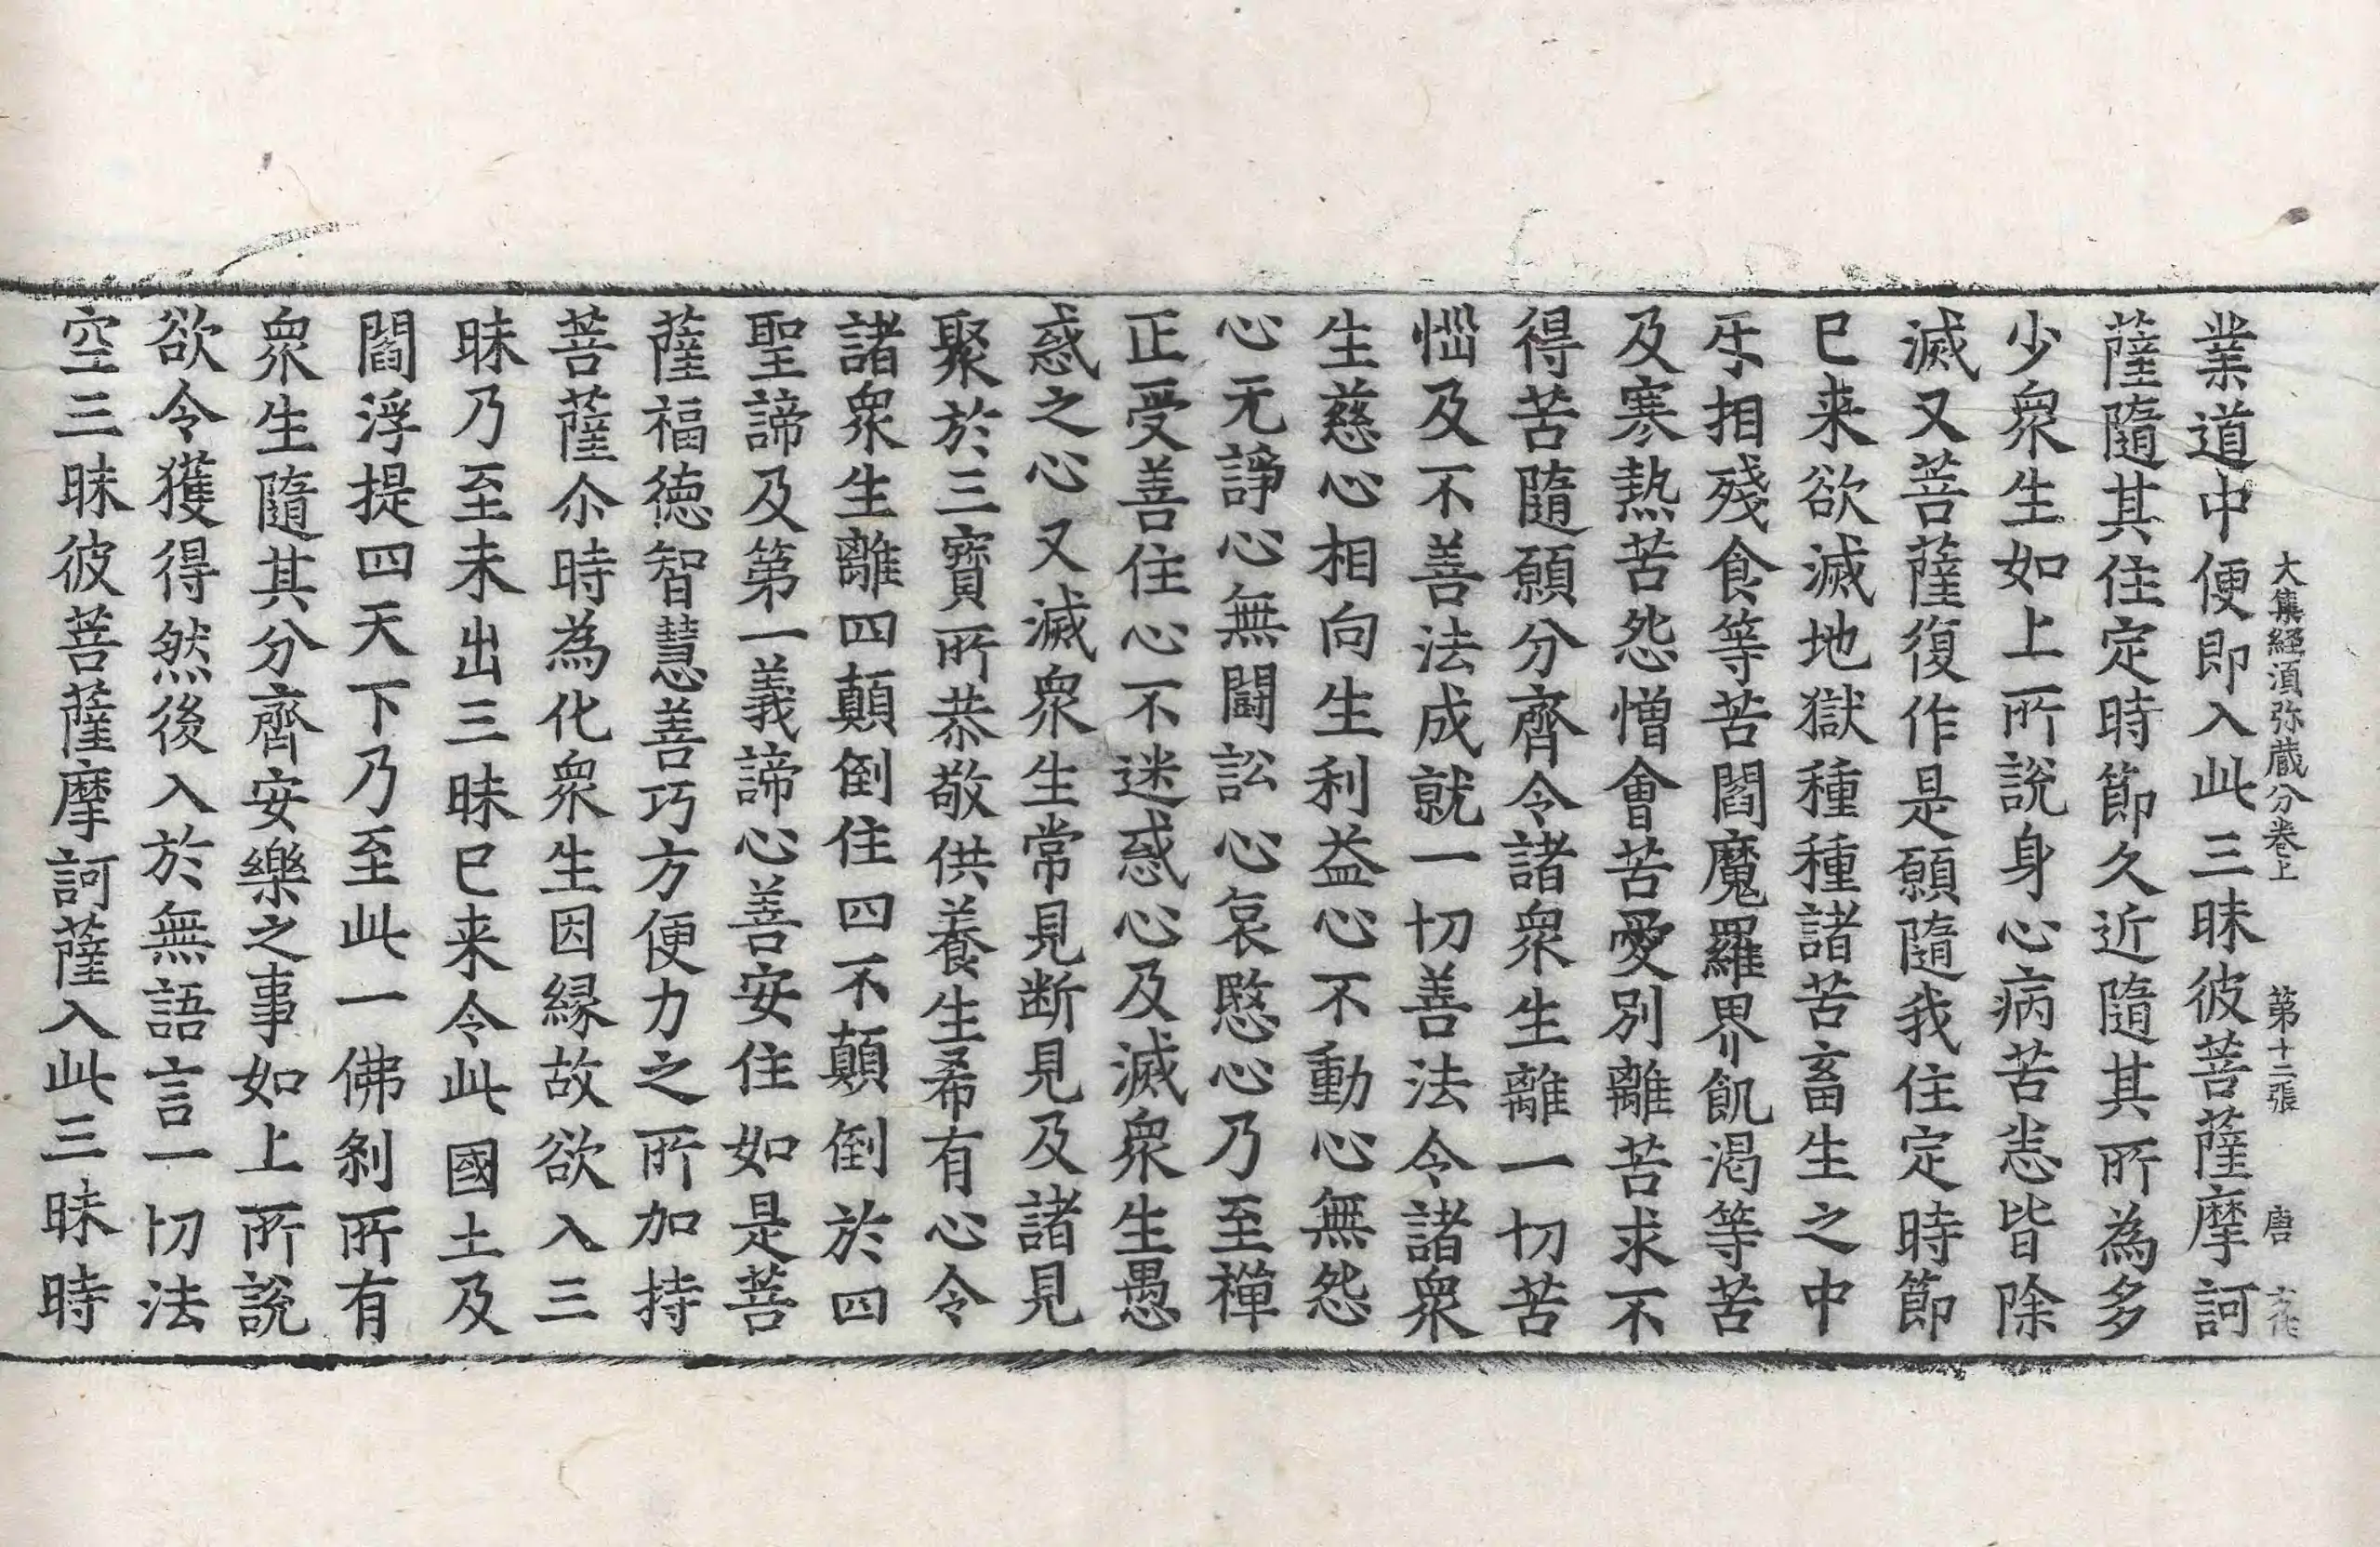 大集經湏弥藏分卷上 第十二張 唐
業道中便即入此三昧彼菩薩摩訶
薩隨其住定時節久近隨其所為多
少衆生如上所說身心病苦恙皆除
滅又菩薩復作是願隨我住定時節
巳来欲滅地獄種種諸苦畜生之中
㸦相殘食等苦閻魔羅界飢渴等苦
及寒熱苦怨憎會苦愛別離苦求不
得苦隨願分齊令諸衆生離一切苦
惱及不善法成就一切善法令諸衆
生慈心相向生利益心不動心無怨
心无諍心無鬪訟心哀愍心乃至禪
正受善住心不迷惑心及滅衆生愚
惑之心又滅衆生常見断見及諸見
聚於三寶所恭敬供養生希有心令
諸衆生離四顛倒住四不顛倒於四
聖諦及第一義諦心善安住如是菩
薩福德智慧善巧方便力之所加持
菩薩尒時為化衆生因緣故欲入三
昧乃至未出三昧巳来令此國土及
閻浮提四天下乃至此一佛剎所有
衆生隨其分齊安樂之事如上所說
欲令獲得然後入於無語言一切法
空三昧彼菩薩摩訶薩入此三昧時